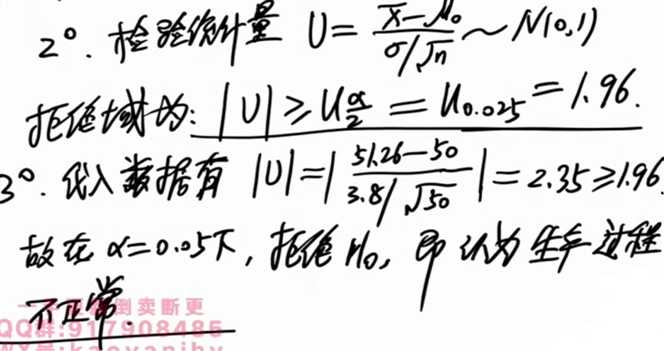 2°. 检验统计量 U = (x̄ - μ₀)/(σ/√n) ~ N(0,1)
拒绝域为: |U| ≥ U_{α/2} = U_{0.025} = 1.96.
3°. 代入数据有 |U| = |(51.26-50)/(3.8/√50)| = 2.35 ≥ 1.96.
故在 α=0.05下, 拒绝 H₀, 即认为生产过程
不正常.
倒卖断更
QQ群:917908485